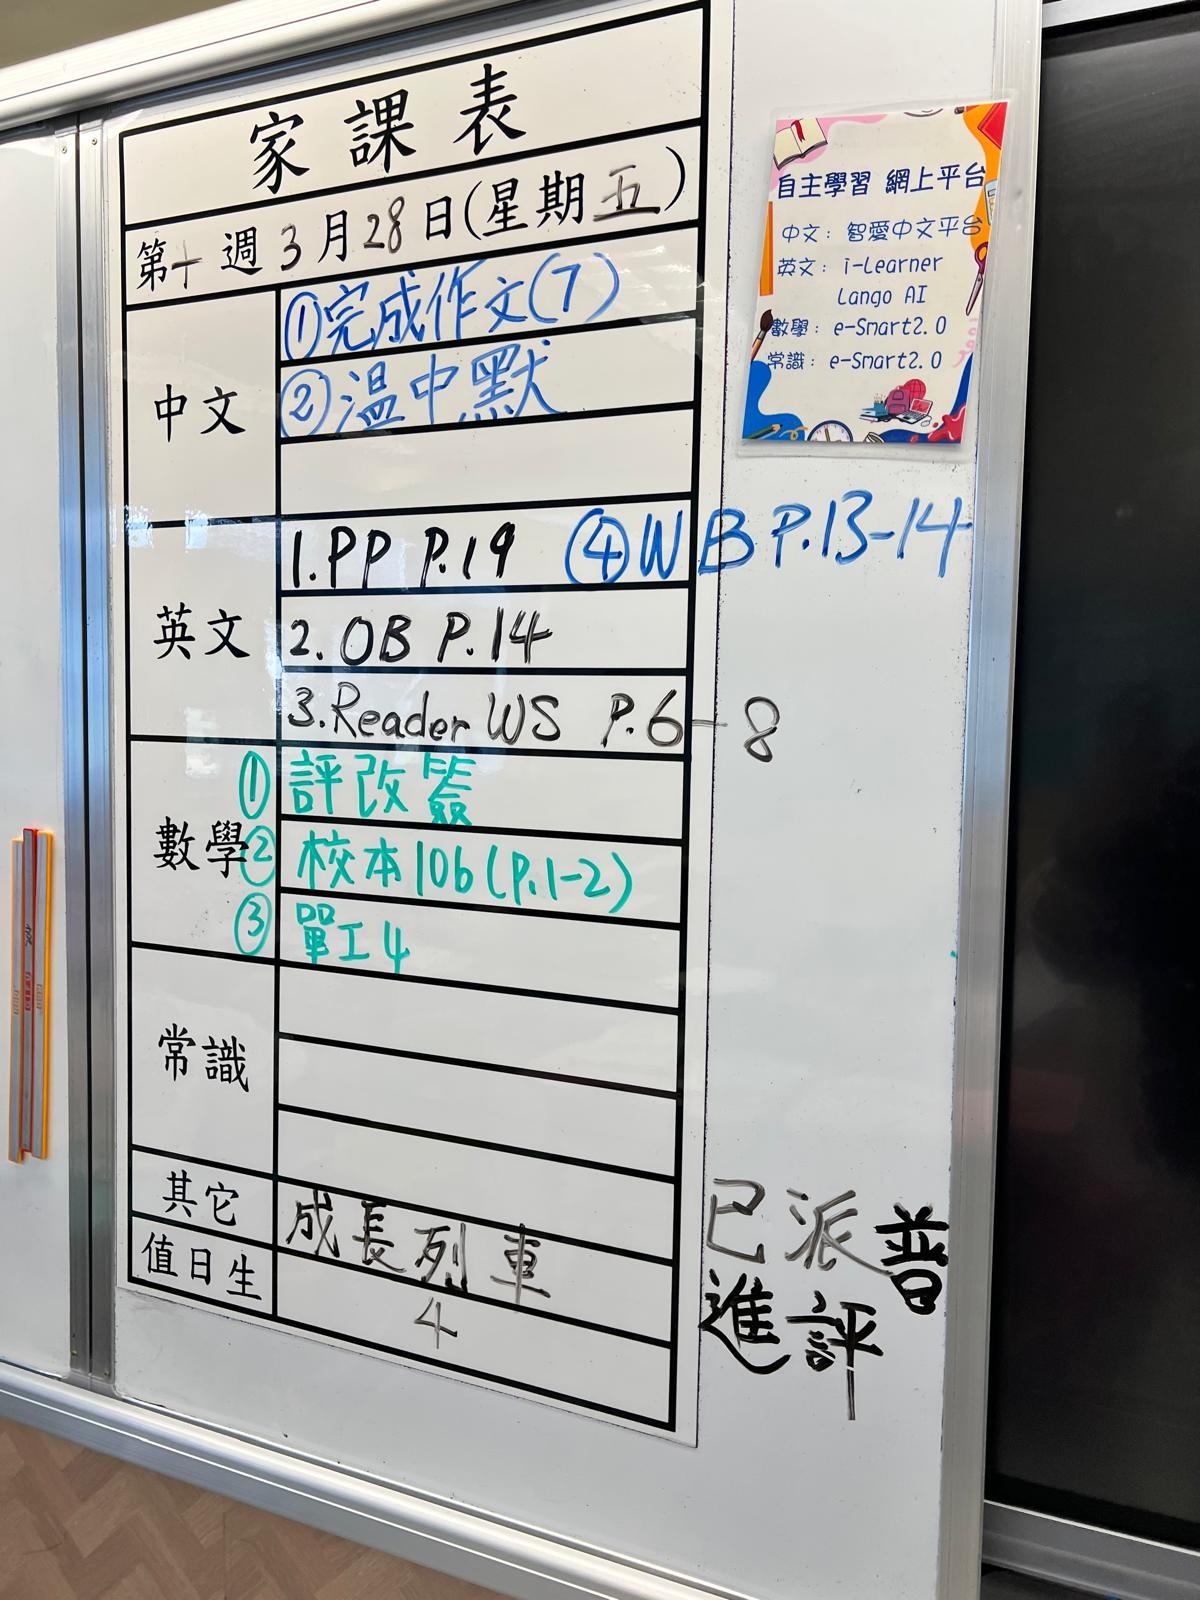 家課表
第十週3月28日(星期五)
中文
①完成作文(7)
②溫中默
英文
1.PP P.19 ④WB P.13-14
2.OB P.14
3.Reader WS P.6-8
數學
①評改簽
②校本10b(P.1-2)
③單工4
常識
其它
成長列車
值日生
4
已派普
進評
自主學習 網上平台
中文：智愛中文平台
英文：i-Learner
Lango AI
數學：e-Smart2.0
常識：e-Smart2.0